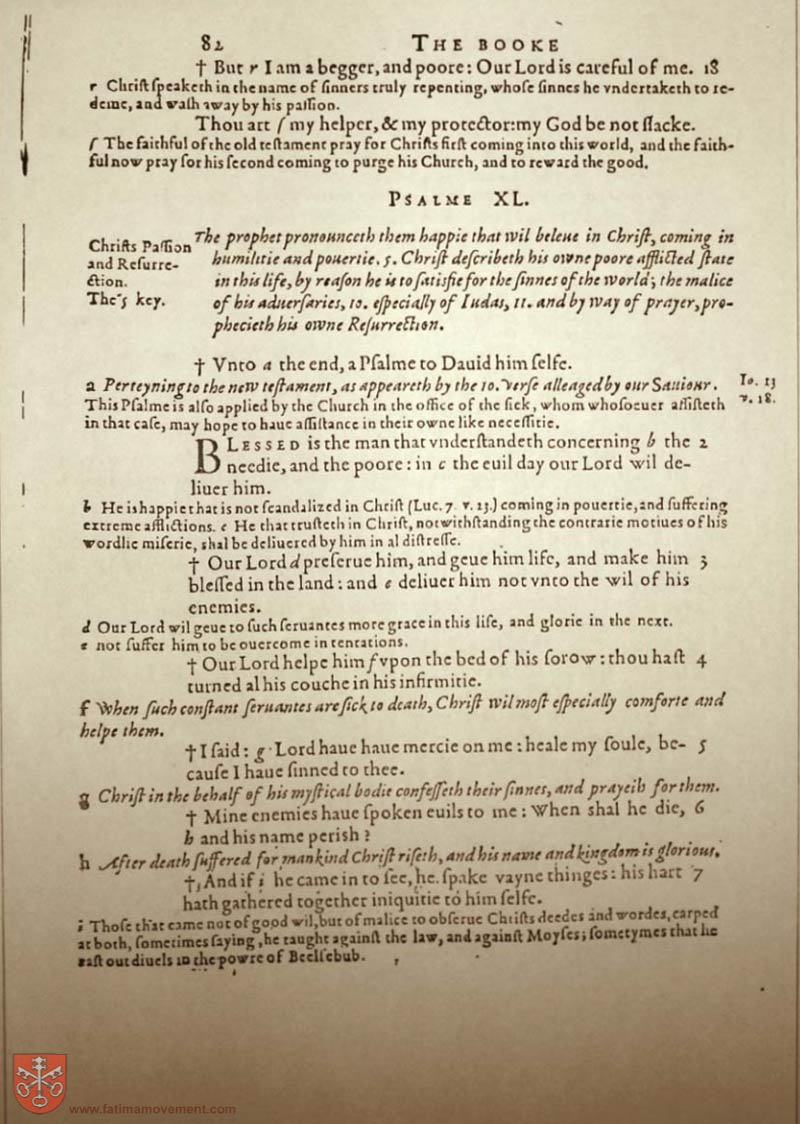 82 THE BOOKE
† But r I am a begger, and poore: Our Lord is careful of me. 18
r Chriſt ſpeaketh in the name of ſinners truly repenting, whoſe ſinnes he vndertaketh to re-
deme, and waſh away by his paſſion.
Thou art ſ my helper, & my protector: my God be not ſlacke.
ſ The faithful of the old teſtament pray for Chriſts firſt coming into this world, and the faith-
ful now pray for his ſecond coming to purge his Church, and to reward the good.
PSALME XL.
Chriſts Paſſion
and Reſurre-
ction.
The 5 key.
The prophet pronounceth them happie that wil beleue in Chriſt, coming in
humilitie and pouertie. 5. Chriſt deſcribeth his owne poore afflicted ſtate
in this life, by reaſon he is to ſatisfie for the ſinnes of the world; the malice
of his aduerſaries, 10. eſpecially of Iudas, 11. and by way of prayer, pro-
phecieth his owne Reſurrection.
† Vnto a the end, a Pſalme to Dauid him ſelfe.
a Perteyning to the new teſtament, as appeareth by the 10. verſe alleaged by our Sauiour. Io. 13
v. 18.
This Pſalme is alſo applied by the Church in the office of the ſick, whom whoſoeuer aſſiſteth
in that caſe, may hope to haue aſſiſtance in their owne like neceſſitie.
BLESSED is the man that vnderſtandeth concerning b the 2
needie, and the poore: in c the euil day our Lord wil de-
liuer him.
b He is happie that is not ſcandalized in Chriſt (Luc. 7. v. 23.) coming in pouertie, and ſuffering
extreme afflictions. c He that truſteth in Chriſt, notwithſtanding the contrarie motiues of his
wordlie miſerie, ſhal be deliuered by him in al diſtreſſe.
† Our Lord d preſerue him, and geue him life, and make him 3
bleſſed in the land: and e deliuer him not vnto the wil of his
enemies.
d Our Lord wil geue to ſuch ſeruantes more grace in this life, and glorie in the next.
e not ſuffer him to be ouercome in tentations.
† Our Lord helpe him f vpon the bed of his ſorow: thou haſt 4
turned al his couche in his infirmitie.
f When ſuch conſtant ſeruantes are ſick to death, Chriſt wil moſt eſpecially comforte and
helpe them.
† I ſaid: g Lord haue haue mercie on me: heale my ſoule, be- 5
cauſe I haue ſinned to thee.
g Chriſt in the behalf of his myſtical bodie confeſſeth their ſinnes, and prayeth for them.
† Mine enemies haue ſpoken euils to me: When shal he die, 6
h and his name perish?
h After death ſuffered for mankind Chriſt riſeth, and his name and kingdom is glorious.
† And if i he came in to ſee, he ſpake vayne thinges: his hart 7
hath gathered together iniquitie to him ſelfe.
i Thoſe that came not of good wil, but of malice to obſerue Chriſts deedes and wordes, carped
at both, ſometimes ſaying, he taught againſt the law, and againſt Moyſes; ſometymes that he
caſt out diuels in the powre of Beelſebub.
www.fatimamovement.com